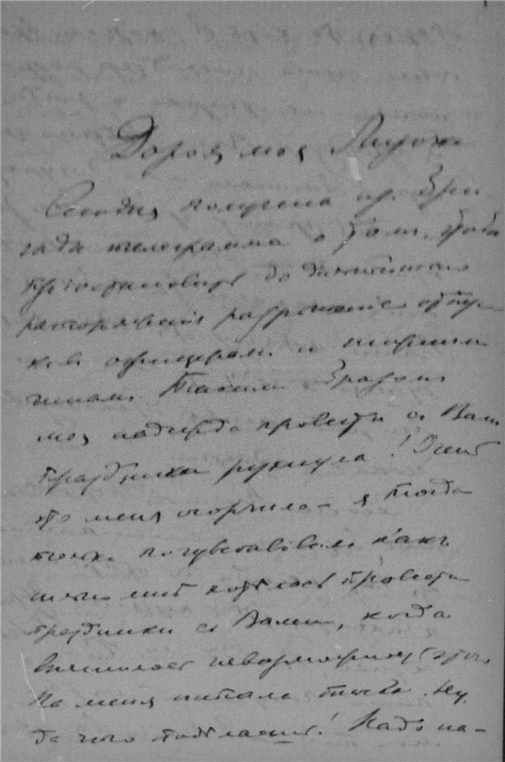 Дорогая моя
Сегодня получена из Бри
гады телеграмма о том, чтобы
пріостановить до дальнѣйшаго
распоряженія разрѣшеніе отпус
ковъ офицерамъ и нижнимъ
чинамъ. Такимъ образомъ
моя надежда провести съ Вами
праздники рухнула! Очень
это меня огорчило и я тогда
только почувствовалъ какъ
мнѣ хотѣлось провести
праздники съ Вами, когда
невозможность этого.
На меня напала тоска. Ну,
да что подѣлаешь! Надо на-